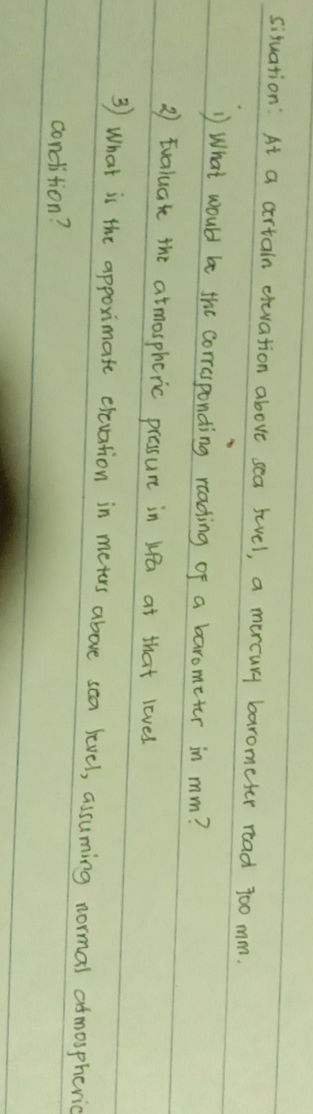 Situation: At a certain elevation above sea level, a mercury barometer read 700 mm.
1) What would be the corresponding reading of a barometer in mm?
2) Evaluate the atmospheric pressure in kPa at that level.
3) What is the approximate elevation in meters above sea level, assuming normal atmospheric
condition?